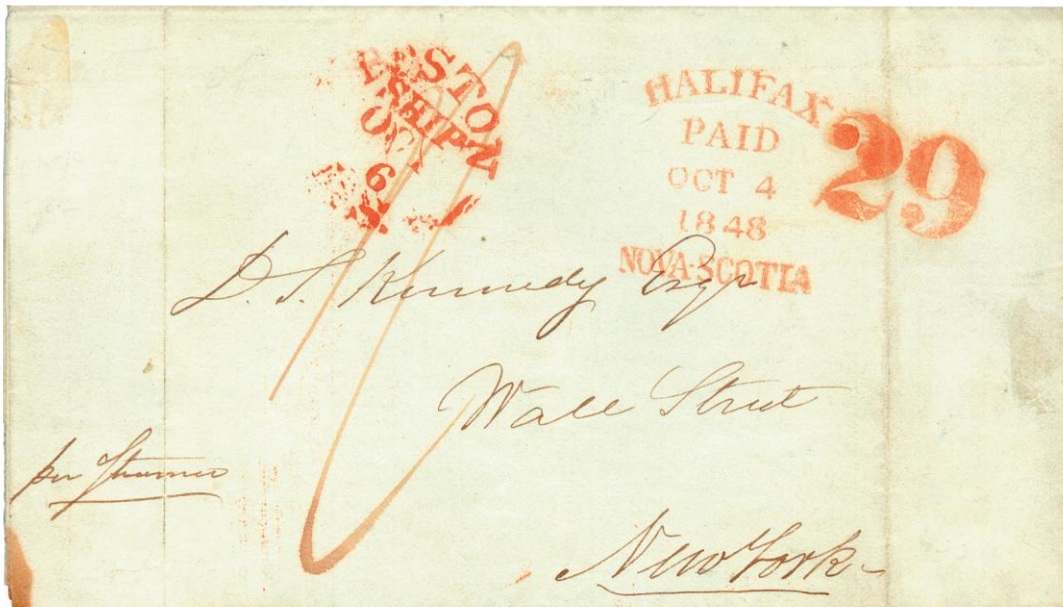 BOSTON
SHIP
OCT
6
HALIFAX
PAID
OCT 4
1848
NOVA·SCOTIA
29
D. S. Kennedy Esqr
Wall Street
per Steamer
New York